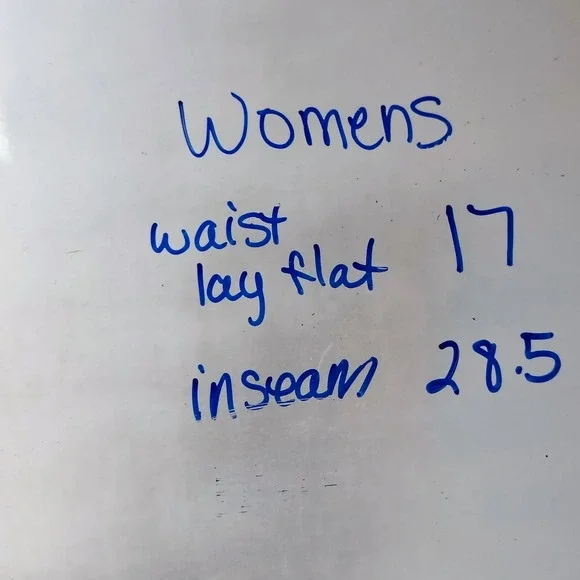 Womens
waist 17
lay flat
inseam 28.5